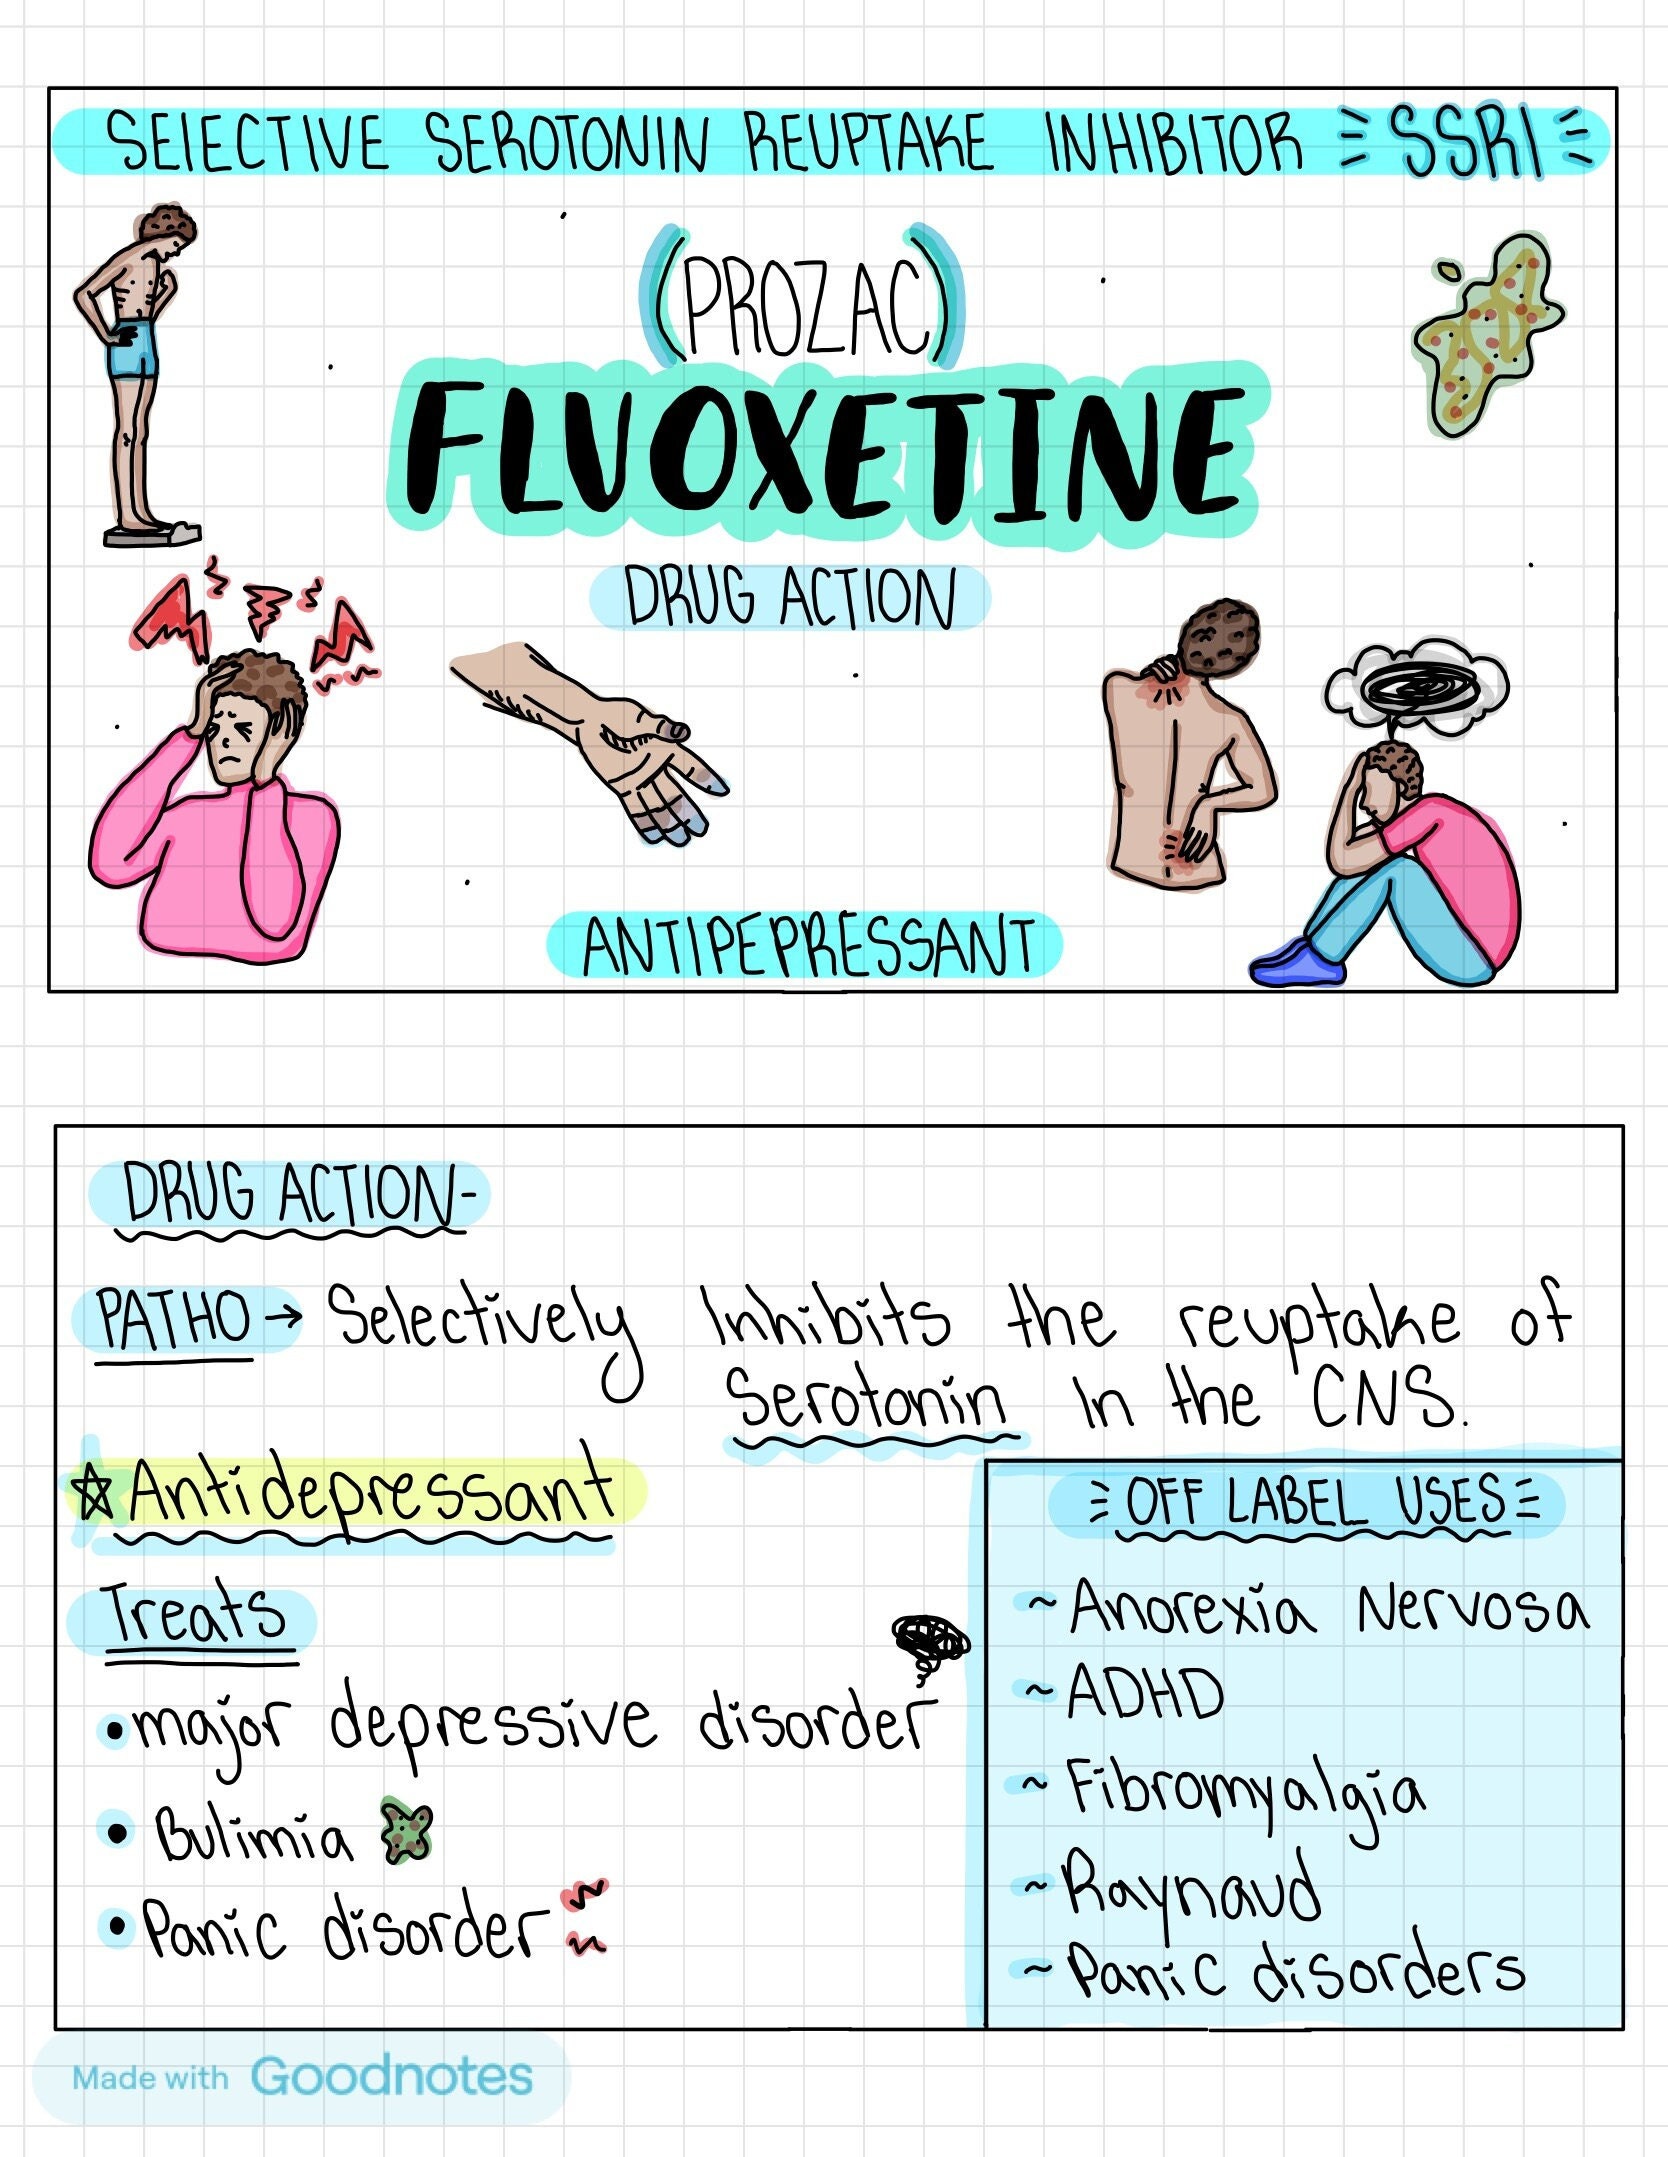 SELECTIVE SEROTONIN REUPTAKE INHIBITOR SSRI
(PROZAC)
FLUOXETINE
DRUG ACTION
ANTIPEPRESSANT
DRUG ACTION-
PATHO → Selectively Inhibits the reuptake of
Serotonin In the CNS.
☆ Antidepressant
Treats
• major depressive disorder
• Bulimia
• Panic disorder
OFF LABEL USES
~ Anorexia Nervosa
~ ADHD
~ Fibromyalgia
~ Raynaud
~ Panic disorders
Made with Goodnotes